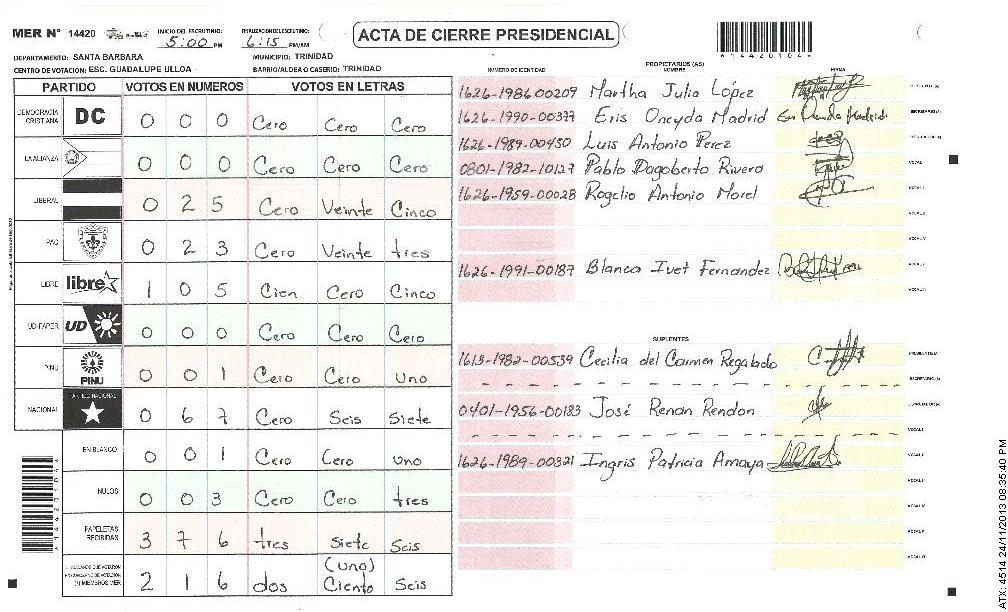 MER N° 14420
INICIO DEL ESCRUTINIO: 5:00 PM
FINALIZACION DEL ESCRUTINIO: 6:15 PM/AM
ACTA DE CIERRE PRESIDENCIAL
*14420104*
DEPARTAMENTO: SANTA BARBARA
MUNICIPIO: TRINIDAD
CENTRO DE VOTACION: ESC. GUADALUPE ULLOA
BARRIO/ALDEA O CASERIO: TRINIDAD
PARTIDO VOTOS EN NUMEROS VOTOS EN LETRAS
DEMOCRACIA CRISTIANA DC 0 0 0 Cero Cero Cero
LA ALIANZA 0 0 0 Cero Cero Cero
LIBERAL 0 2 5 Cero Veinte Cinco
PAC 0 2 3 Cero Veinte tres
LIBRE libre 1 0 5 Cien Cero Cinco
UD-FAPER UD 0 0 0 Cero Cero Cero
PINU PINU 0 0 1 Cero Cero uno
NACIONAL 0 6 7 Cero Seis Siete
EN BLANCO 0 0 1 Cero Cero uno
NULOS 0 0 3 Cero Cero tres
PAPELETAS RECIBIDAS 3 7 6 tres siete Seis
(1) MIEMBROS MER 2 1 6 dos (uno) Ciento Seis
PROPIETARIOS (AS)
NUMERO DE IDENTIDAD NOMBRE FIRMA
1626-1986-00209 Martha Julia López
1626-1990-00377 Eris Oneyda Madrid
1626-1989-00450 Luis Antonio Perez
0801-1982-10127 Pablo Dagoberto Rivera
1626-1959-00028 Rogelio Antonio Morel
1626-1991-00187 Blanca Ivet Fernandez
SUPLENTES
1613-1982-00539 Cecilia del Carmen Regalado PRESIDENTE (A)
SECRETARIO (A)
0401-1956-00183 José Renan Rendon
1626-1989-00321 Ingris Patricia Amaya
ATX: 4514 24/11/2013 08:35:40 PM